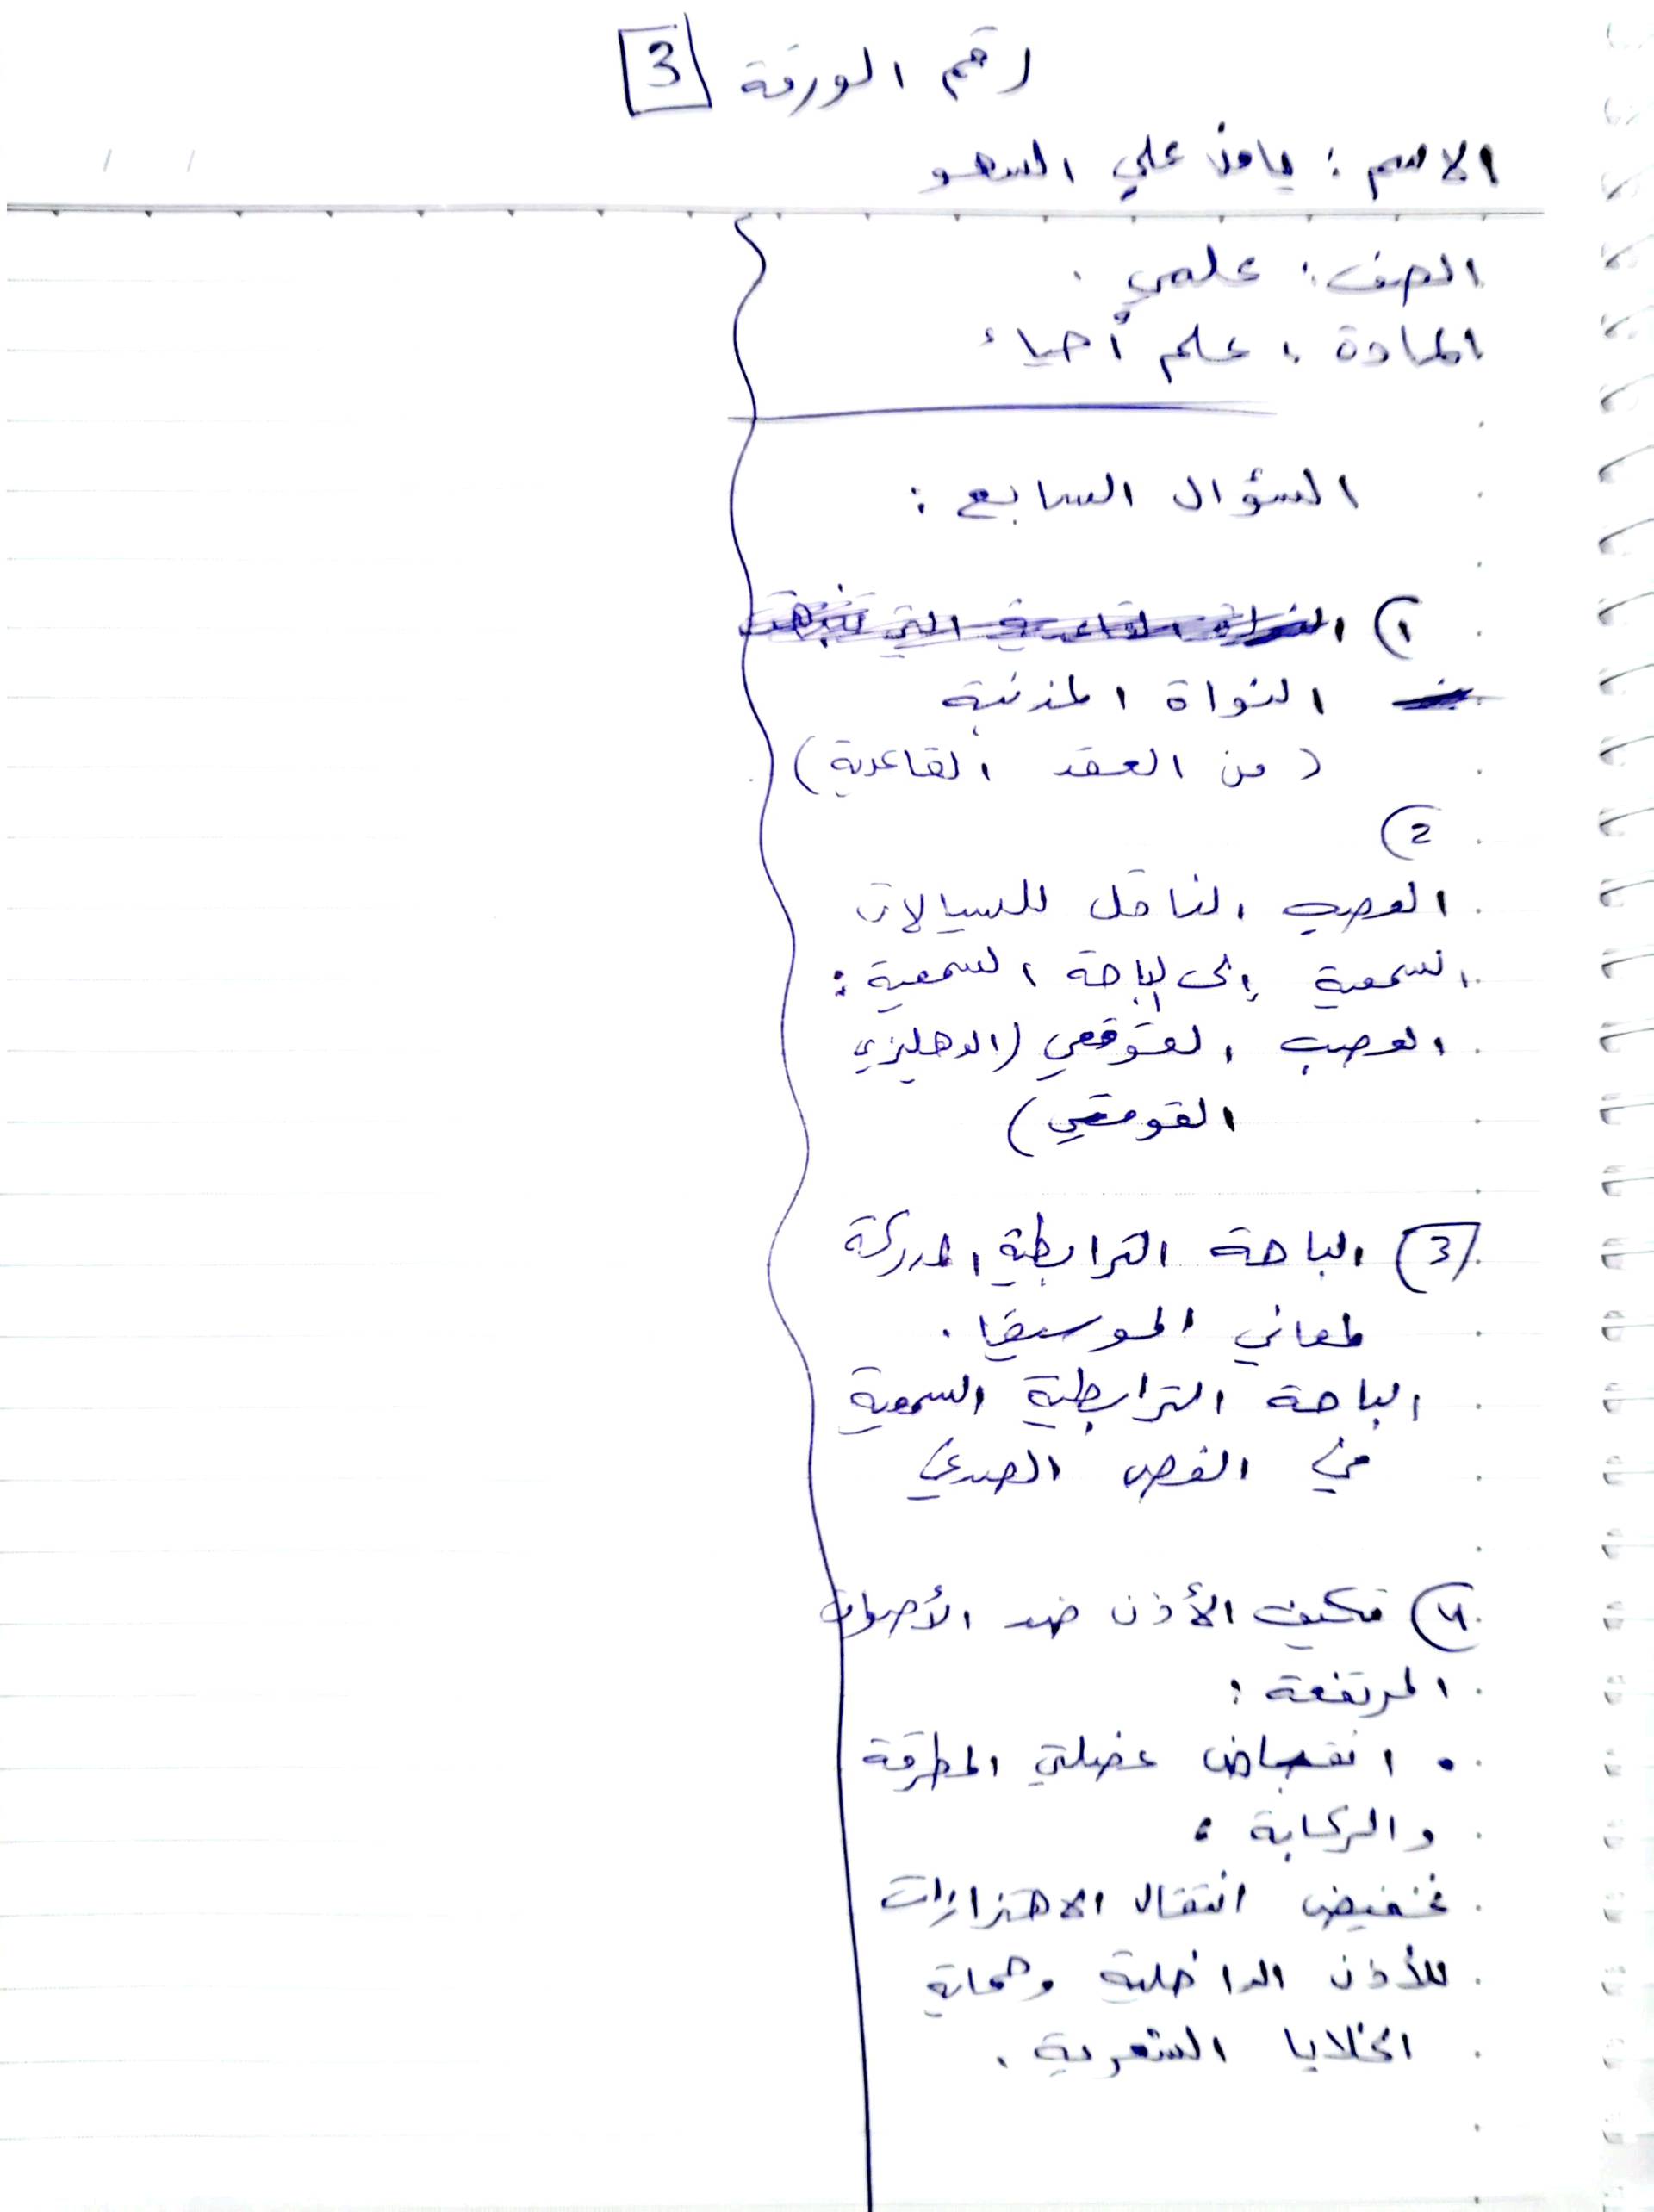 رقم الورقة 3
الاسم : يامن علي السهو
الصف : علمي .
المادة : علم أحياء
السؤال السابع :
1) النواة المذنبة
(من العقد القاعدية)
2)
العصب الناقل للسيالات
السمعية إلى الباحة السمعية :
العصب القوقعي (الدهليزي
القوقعي)
3) الباحة الترابطية المدركة
لمعاني الموسيقا .
الباحة الترابطية السمعية
في الفص الصدغي
4) تكيف الأذن ضد الأصوات
المرتفعة :
• انقباض عضلتي المطرقة
والركابة :
تخفيض انتقال الاهتزازات
للأذن الداخلية وحماية
الخلايا الشعرية .